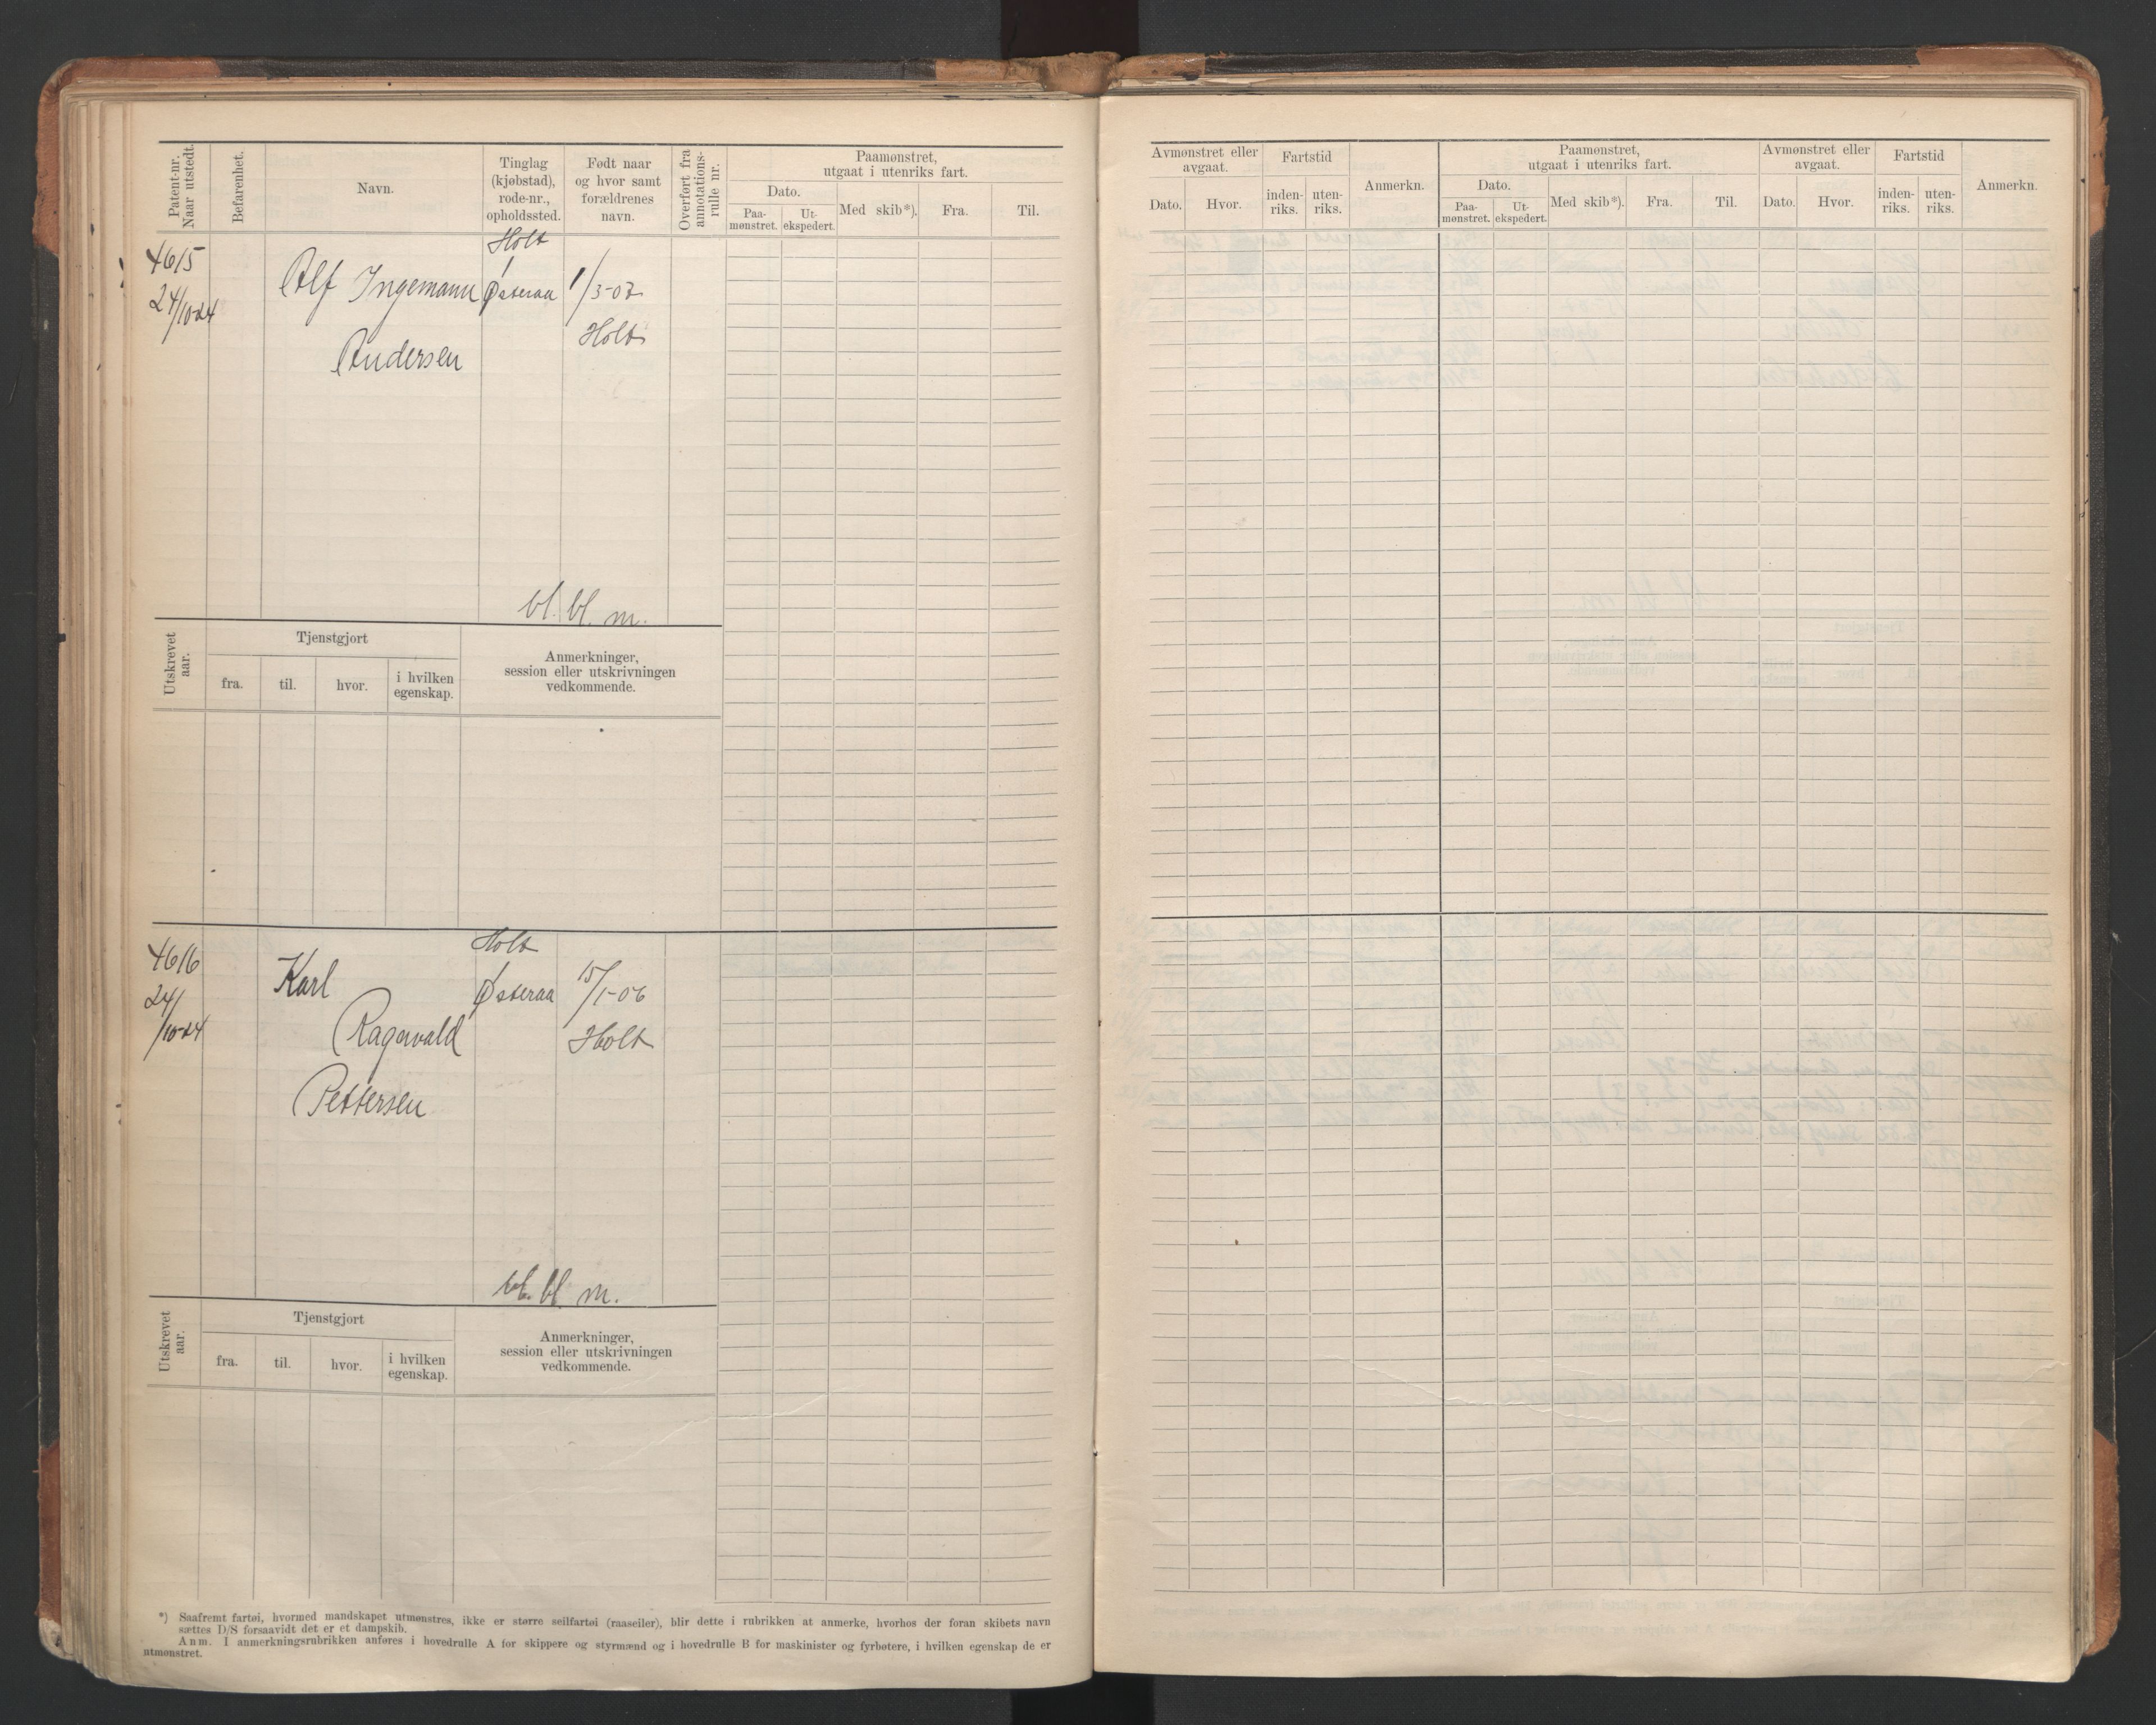 Patent-nr. Naar utstedt.
Befarenhet.
Navn.
Tinglag
(kjøbstad),
rode-nr.,
opholdssted.
Født naar
og hvor samt
forældrenes
navn.
Overført fra
annotations-
rulle nr.
Paamønstret,
utgaat i utenriks fart.
Dato.
Paa-
mønstret.
Ut-
ekspedert.
Med skib*).
Fra.
Til.
4615
24/10-24
Alf Ingemann
Andersen
Holt
/
Østeraa
1/3-03
Holt
bl. bl. m.
Utskrevet
aar.
Tjenstgjort
fra.
til.
hvor.
i hvilken
egenskap.
Anmerkninger,
session eller utskrivningen
vedkommende.
4616
24/
/10-24
Karl
Ragnvald
Pettersen
Holt
Østeraa
15/1-06
Holt
bl. bl. m.
Utskrevet
aar.
Tjenstgjort
fra.
til.
hvor.
i hvilken
egenskap.
Anmerkninger,
session eller utskrivningen
vedkommende.
*) Saafremt fartøi, hvormed mandskapet utmønstres, ikke er større seilfartøi (raaseiler), blir dette i rubrikken at anmerke, hvorhos der foran skibets navn
sættes D/S forsaavidt det er et dampskib.
Anm. I anmerkningsrubrikken anføres i hovedrulle A for skippere og styrmænd og i hovedrulle B for maskinister og fyrbøtere, i hvilken egenskap de er
utmønstret.
Avmønstret eller
avgaat.
Dato.
Hvor.
Fartstid
inden-
riks.
uten-
riks.
Anmerkn.
Paamønstret,
utgaat i utenriks fart.
Dato.
Paa-
mønstret.
Ut-
ekspedert.
Med skib*).
Fra.
Til.
Avmønstret eller
avgaat.
Dato.
Hvor.
Fartstid
inden-
riks.
uten-
riks.
Anmerkn.